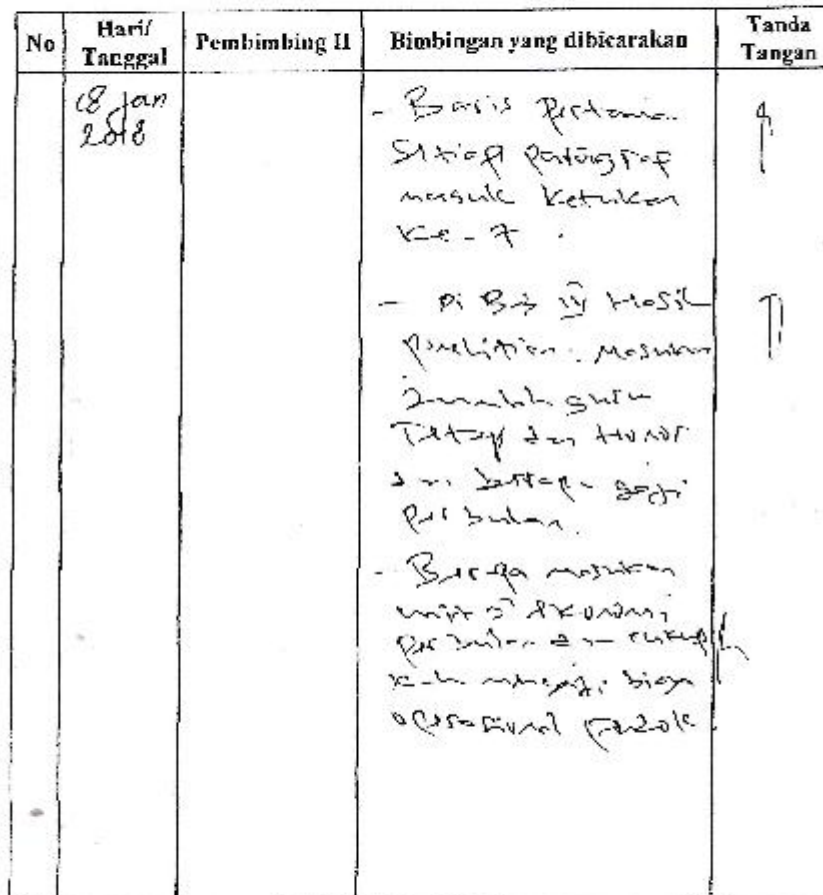 No
Hari/
Tanggal
Pembimbing II
Bimbingan yang dibicarakan
Tanda
Tangan
18 Jan
2018
- Baris Pertama
Setiap paragraf
masuk Ketukan
Ke-7.
- Di Bab IV Hasil
penelitian. Masukan
Jumlah guru
Tetap dan Honor
dan berapa gaji
per bulan.
- Berapa masukan
unit2 ekonomi
per bulan dan cukup
kah menggaji, biaya
operasional pondok